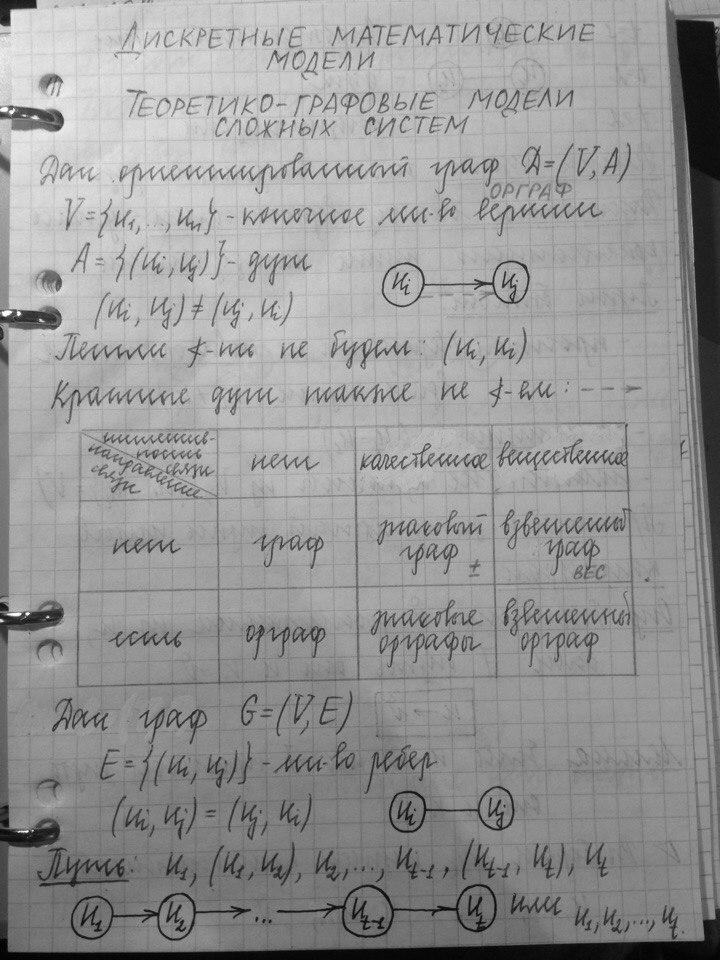 ДИСКРЕТНЫЕ МАТЕМАТИЧЕСКИЕ
МОДЕЛИ
ТЕОРЕТИКО-ГРАФОВЫЕ МОДЕЛИ
СЛОЖНЫХ СИСТЕМ
Дан ориентированный граф D=(V, A)
ОРГРАФ
V={u₁,...,uₙ} - конечное мн-во вершин
A={(uᵢ, uⱼ)} - дуги
uᵢ uⱼ
(uᵢ, uⱼ) ≠ (uⱼ, uᵢ)
Петли ∢-ть не будем: (uᵢ, uᵢ)
Кратные дуги также не ∢-ем: - - →
интенсив-
ность
связи
направление
связи
нет качественное вещественное
нет граф знаковый граф ± взвешенный граф ВЕС
есть орграф знаковые орграфы взвешенный орграф
Дан граф G=(V, E)
E={(uᵢ, uⱼ)} - мн-во ребер
(uᵢ, uⱼ) = (uⱼ, uᵢ) uᵢ uⱼ
Путь: u₁, (u₁, u₂), u₂,..., u_{t-1}, (u_{t-1}, u_t), u_t
u₁ → u₂ → ... → u_{t-1} → u_t или u₁, u₂,..., u_t